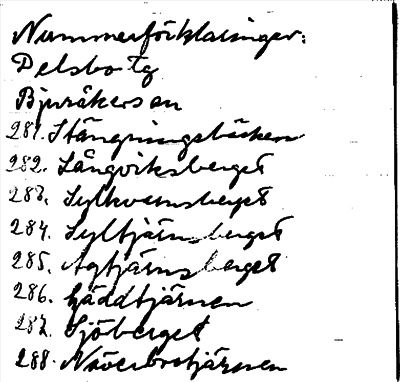 Nummerförklaringar:
Delsbo tg
Bjuråkers sn
281. Stängningsbäcken
282. Långviksberget
283. Sylkvarnsberget
284. Syltjärnsberget
285. Agtjärnsberget
286. Gäddtjärnen
287. Sjöberget
288. Näverbostjärnen